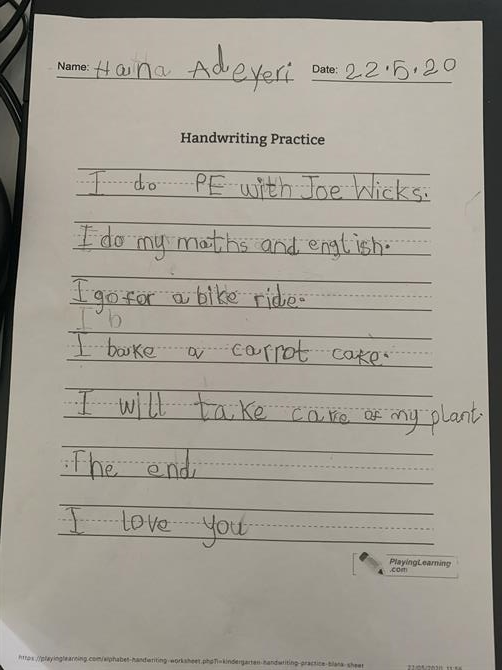 Name: Hana Adeyeri Date: 22.5.20
Handwriting Practice
I do PE with Joe Wicks.
I do my maths and english.
I go for a bike ride.
I b
I bake a carrot cake.
I will take care of my plant.
The end
I love you
PlayingLearning
.com
https://playinglearning.com/alphabet-handwriting-worksheet.php?i=kindergarten-handwriting-practice-blank-sheet 22/05/2020, 11:55